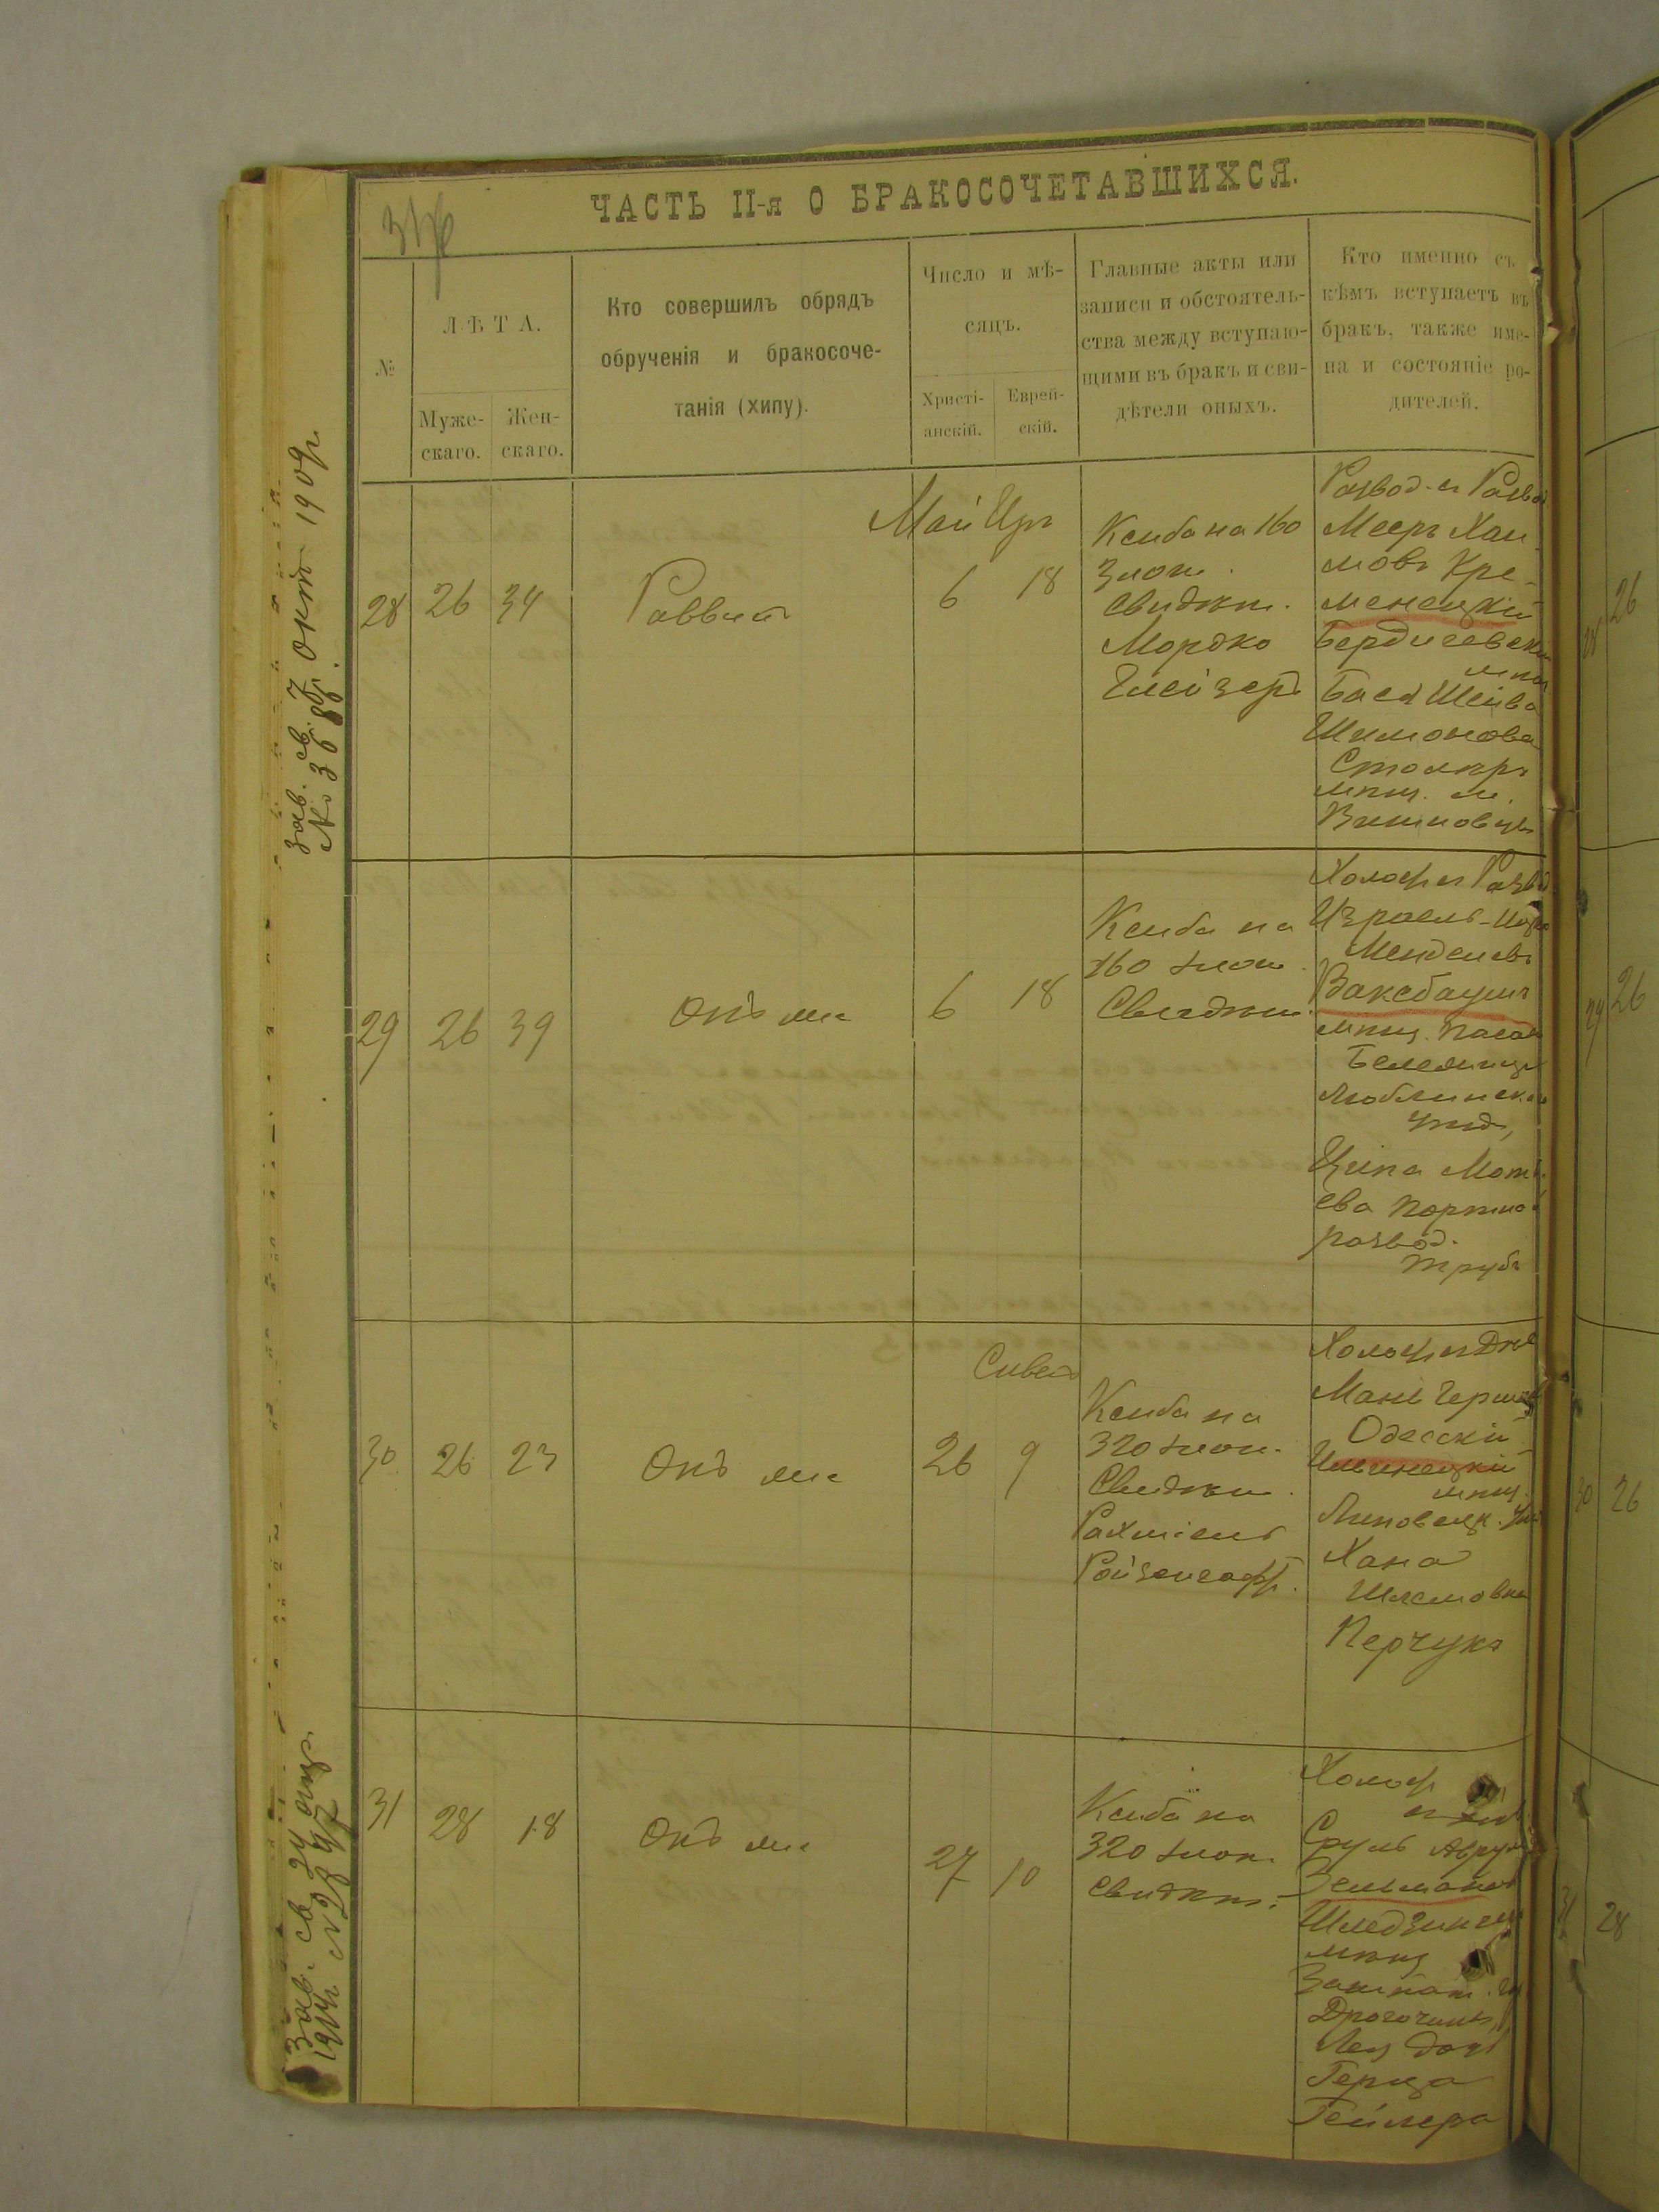 ЧАСТЬ II-я О БРАКОСОЧЕТАВШИХСЯ.
№
ЛѢТА.
Муже-
скаго.
Жен-
скаго.
Кто совершилъ обрядъ
обрученія и бракосоче-
танія (хипу).
Число и мѣ-
сяцъ.
Христі-
анскій.
Еврей-
скій.
Главные акты или
записи и обстоятель-
ства между вступаю-
щими въ бракъ и сви-
дѣтели оныхъ.
Кто именно съ
кѣмъ вступаетъ въ
бракъ, также име-
на и состояніе ро-
дителей.
28
26
34
Раввин
Май Иръ
6
18
Ксиба на 160
Злот.
Свидѣт.
Мордко
Глейзеръ
Развод. съ Развод
Мееръ Хаи-
мовъ Кре-
менецкій
Бердичевскій
мѣщ
Бася Шейва
Шимонова
Столяръ
мѣщ. м.
29
26
39
Онъ же
6
18
Ксиба на
160 злот.
Свидѣт.
Холост съ Развод
Израель-
Менделевъ
Ваксбаумъ
мѣщ. посад
Люблинска
уѣзд,
Ципа
ева
развод.
30
26
23
Онъ же
Сиванъ
26
9
Ксиба на
320 злот.
Свидѣт.
Рахміель
Холост съ Дѣв
Одесскій
Ильинецкій
мѣщ.
Липовецк. уѣз
Хана
Шлемовна
Перчукъ
31
28
18
Онъ же
27
10
Ксиба на
320 злот.
Свидѣт.
Холост
Сруль Аврум
Зельманов
мѣщ
Лея дочь
Герша
Гейлера
Зав. св. 7 окт 1909 г.
№ 3688
Зав. св. 24 апр.
1914 г. №2897
28
26
29
26
30
26
31
28